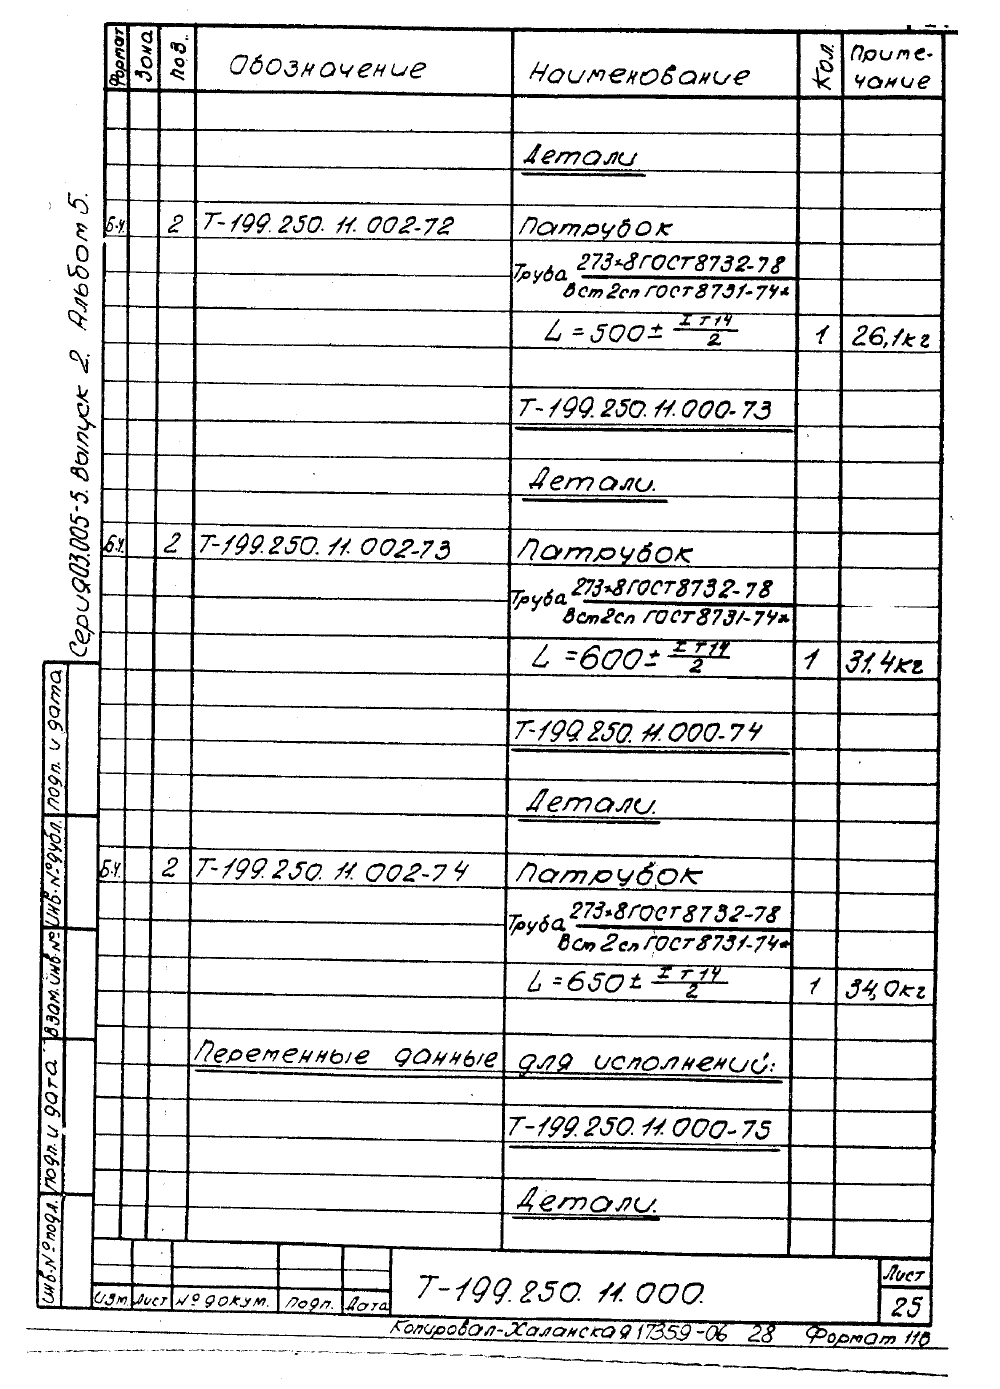 Формат Зона Поз. Обозначение Наименование Кол. Приме-
чание
Детали
Б.Ч. 2 Т-199.250.11.002-72 Патрубок
Труба 273×8 ГОСТ 8732-78
Вст2сп ГОСТ 8731-74*
L=500± IT14/2 1 26,1кг
Т-199.250.11.000-73
Детали.
Б.Ч. 2 Т-199.250.11.002-73 Патрубок
Труба 273×8 ГОСТ 8732-78
Вст2сп ГОСТ 8731-74*
L=600± IT14/2 1 31,4кг
Т-199.250.11.000-74
Детали.
Б.Ч. 2 Т-199.250.11.002-74 Патрубок
Труба 273×8 ГОСТ 8732-78
Вст2сп ГОСТ 8731-74*
L=650± IT14/2 1 34,0кг
Переменные данные для исполнений:
Т-199.250.11.000-75
Детали.
Серия 03.005-5. Выпуск 2. Альбом 5.
Инв.№подл. Подп. и дата Взам.инв.№ Инв.№дубл. Подп. и дата
Изм Лист №докум. Подп. Дата
Т-199.250.11.000.
Лист
25
Копировал-Халанская 17359-06 28 Формат 11В